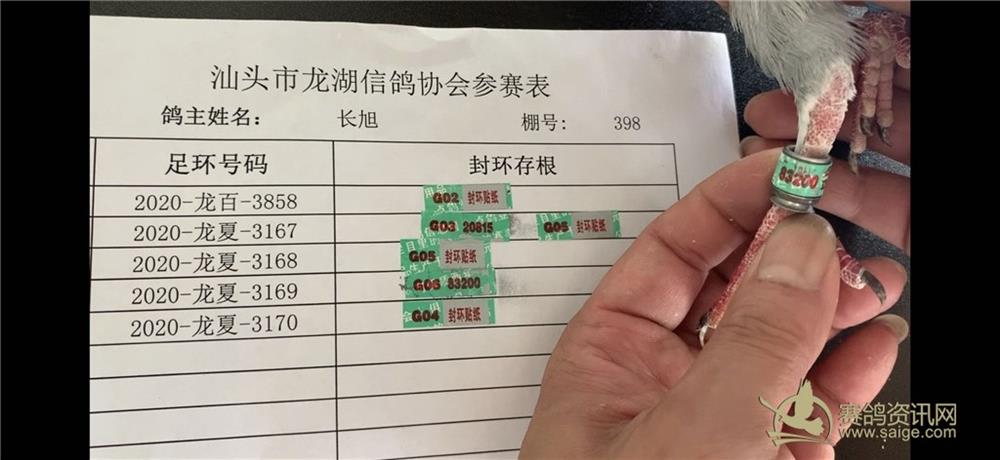 汕头市龙湖信鸽协会参赛表
鸽主姓名: 长旭 棚号: 398
足环号码 封环存根
2020-龙百-3858 G02 封环贴纸
2020-龙夏-3167 G03 20815 G05 封环贴纸
2020-龙夏-3168 G05 封环贴纸
2020-龙夏-3169 G06 83200
2020-龙夏-3170 G04 封环贴纸
83200
赛鸽资讯网
www.saige.com